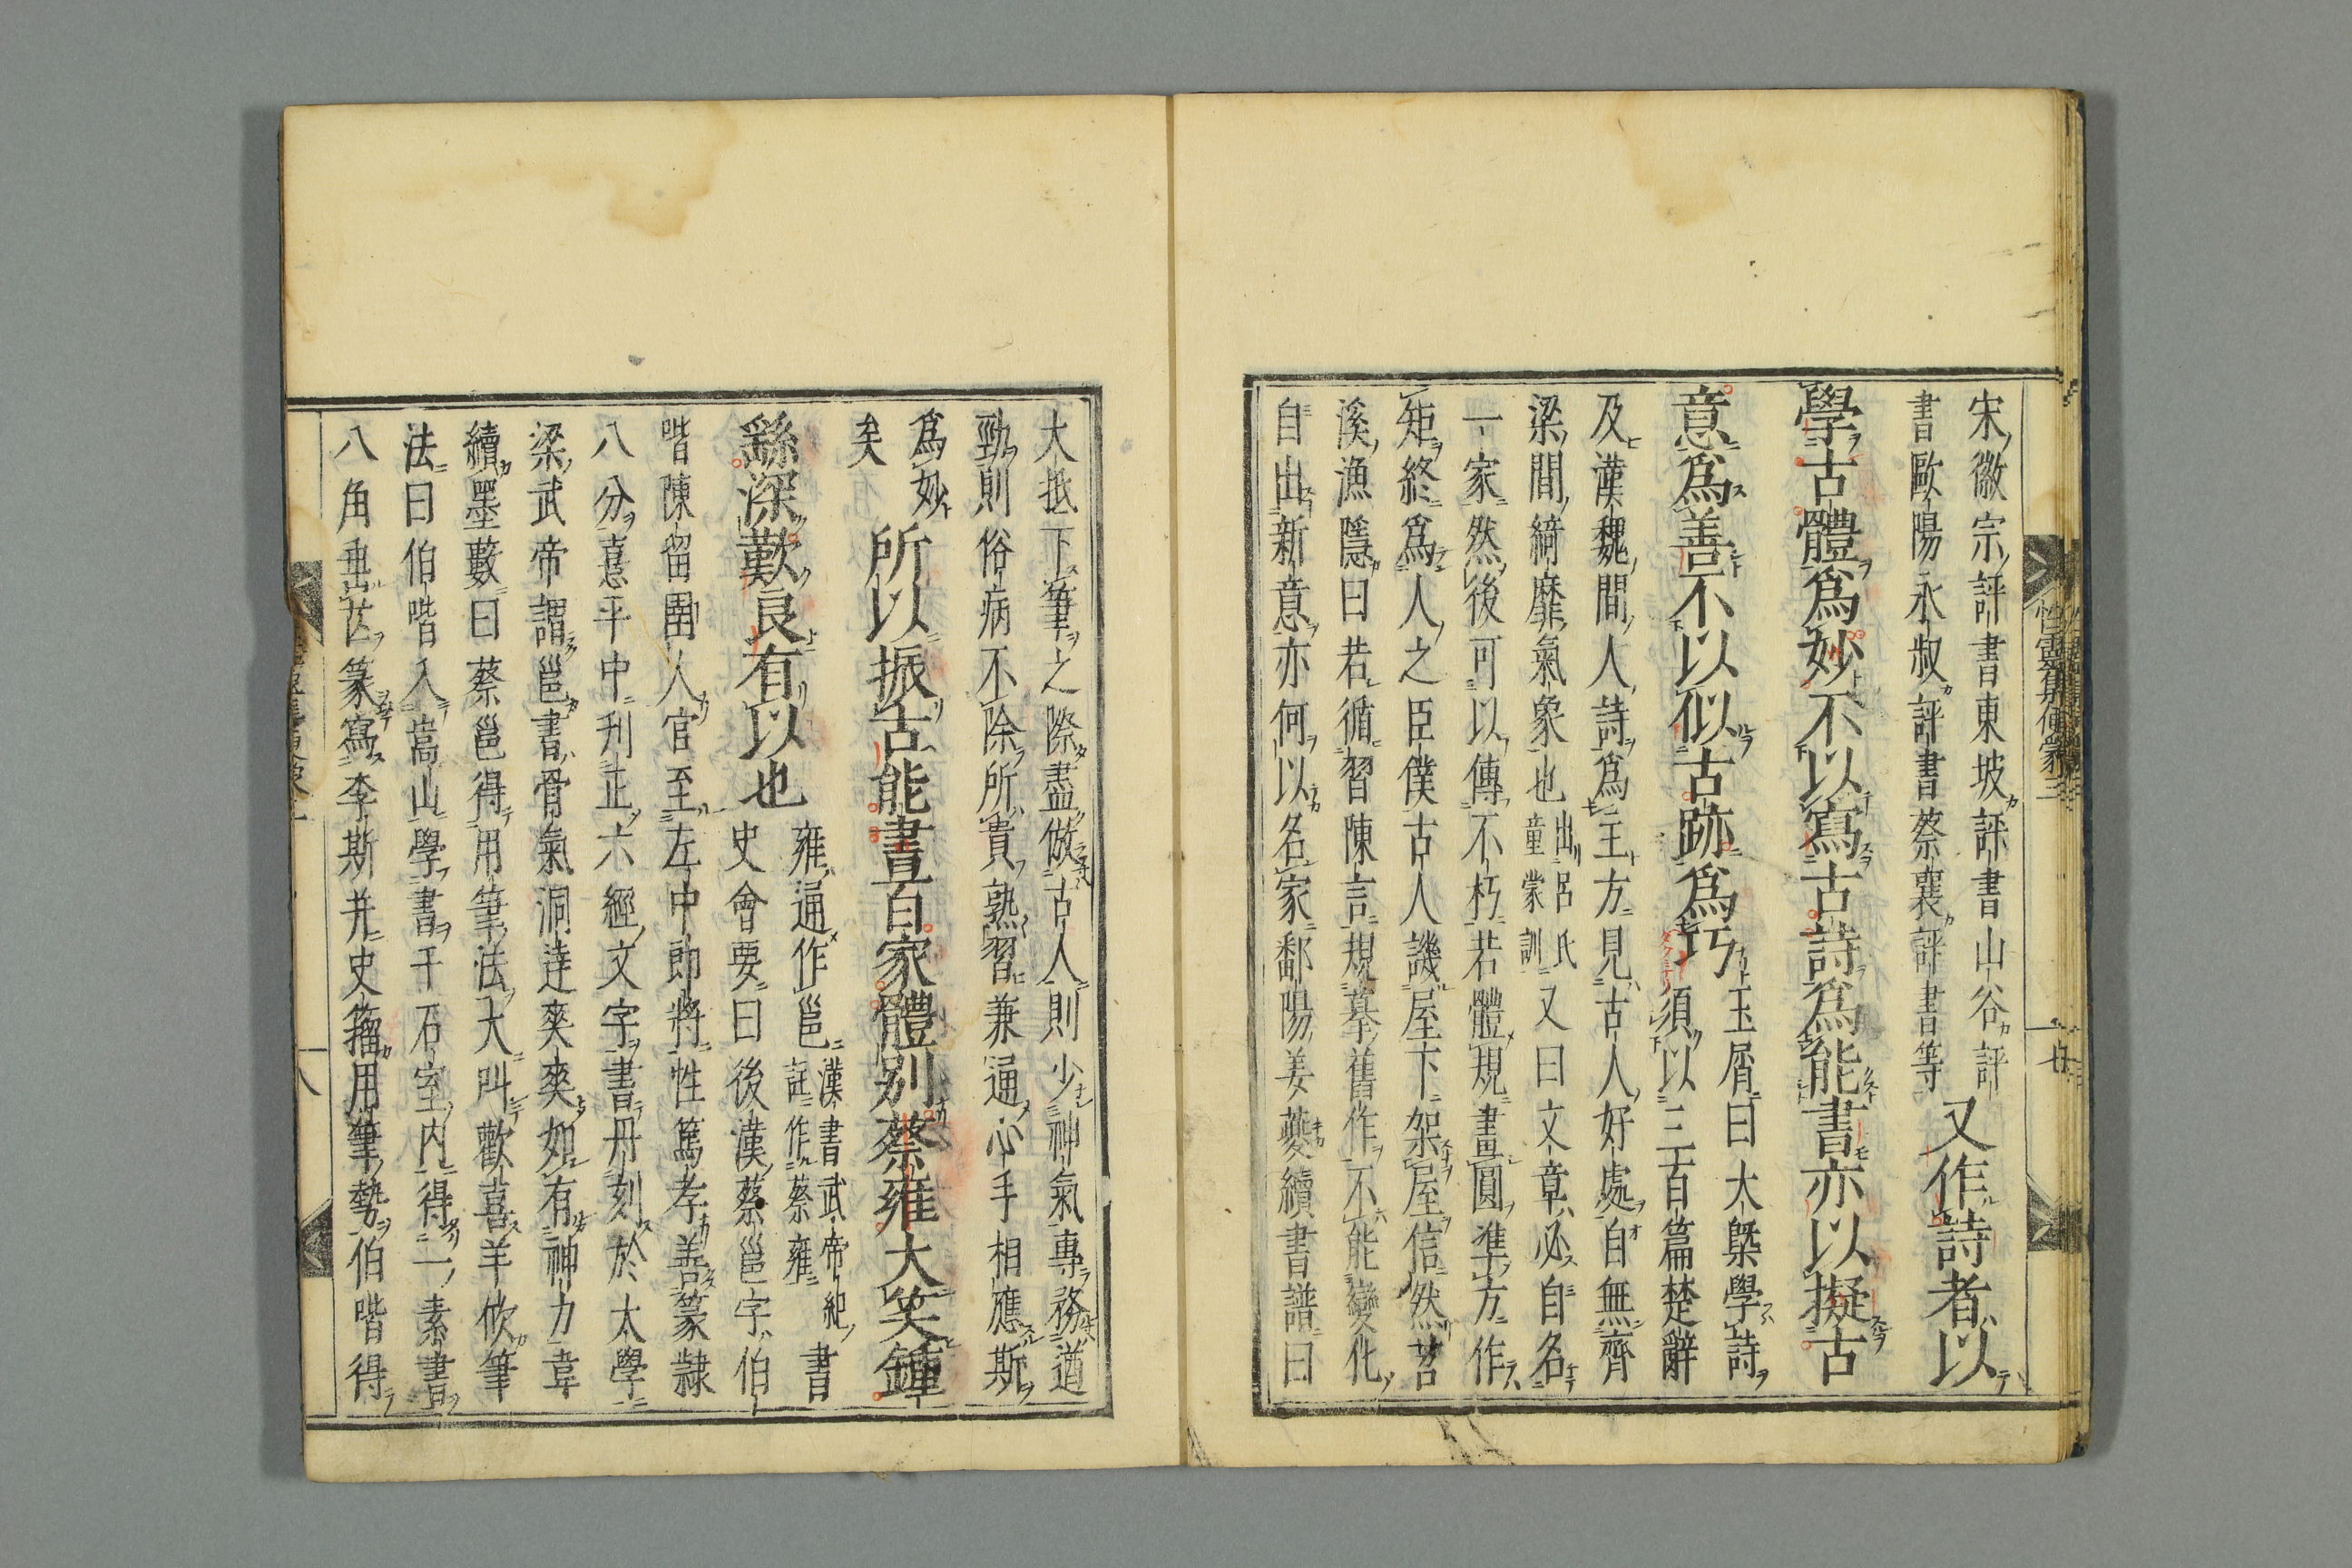 宋徽宗評書東坡評書山谷評
書歐陽永叔評書蔡襄評書等
又作詩者以
學古體爲妙不以寫古詩爲能書亦以擬古
意爲善不以似古跡爲巧
玉屑曰大槩學詩
須以三百篇楚辭
及漢魏間人詩爲主方見古人好處自無齊
梁間綺靡氣象也
出呂氏
童蒙訓
又曰文章必自名
一家然後可以傳不朽若體規畫圓準方作
矩終爲人之臣僕古人譏屋下架屋信然苕
溪漁隱曰若循習陳言規摹舊作不能變化
自出新意亦何以名家鄱陽姜夔續書譜曰
大抵下筆之際盡倣古人則少神氣專務遒
勁則俗病不除所貴熟習兼通心手相應斯
爲妙
矣
所以振古能書百家體別蔡雍大笑鍾
繇深歎良有以也
雍通作邕
漢書武帝紀
註作蔡雍
書
史會要曰後漢蔡邕字伯
喈陳留圉人官至左中郎將性篤孝善篆隷
八分熹平中刋正六經文字書丹刻於太學
梁武帝謂邕書骨氣洞達爽爽如有神力韋
續墨藪曰蔡邕得用筆法大叫歡喜羊欣筆
法曰伯喈入嵩山學書于石室内得一素書
八角垂芒篆寫李斯并史籀用筆勢伯喈得
性靈集便蒙三
十七
十八